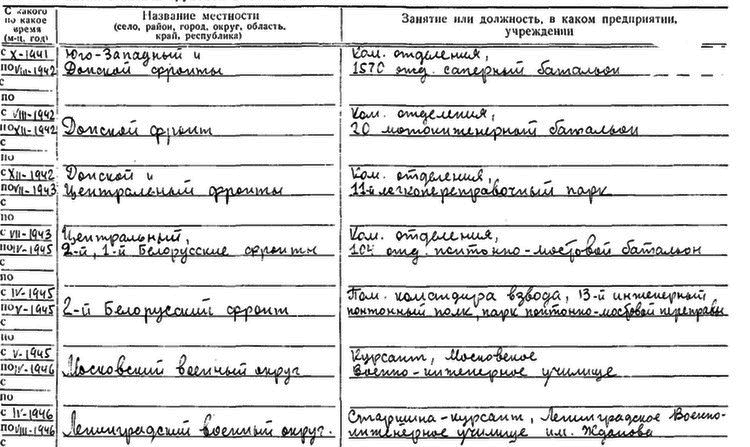 С какого по какое время (м-ц, год)
Название местности
(село, район, город, округ, область, край, республика)
Занятие или должность, в каком предприятии, учреждении
с X-1941 Юго-Западный и Ком. отделения,
по VIII-1942 Донской фронты 1570 отд. саперный батальон
с
по
с VIII-1942 Ком. отделения,
по XII-1942 Донской фронт 20 мотоинженерный батальон
с
по
с XII-1942 Донской и Ком. отделения,
по VII-1943 Центральный фронты 11-й легкопереправочный парк
с
по
с VII-1943 Центральный, Ком. отделения,
по IV-1945 2-й, 1-й Белорусские фронты 104 отд. понтонно-мостовой батальон
с
по
с IV-1945 Пом. командира взвода, 13-й инженерный
по V-1945 2-й Белорусский фронт понтонный полк, парк понтонно-мостовой переправы
с
по
с V-1945 Курсант, Московское
по IV-1946 Московский военный округ Военно-инженерное училище
с
по
с IV-1946 Старшина-курсант, Ленинградское Военно-
по VIII-1946 Ленинградский военный округ. инженерное училище им. Жданова